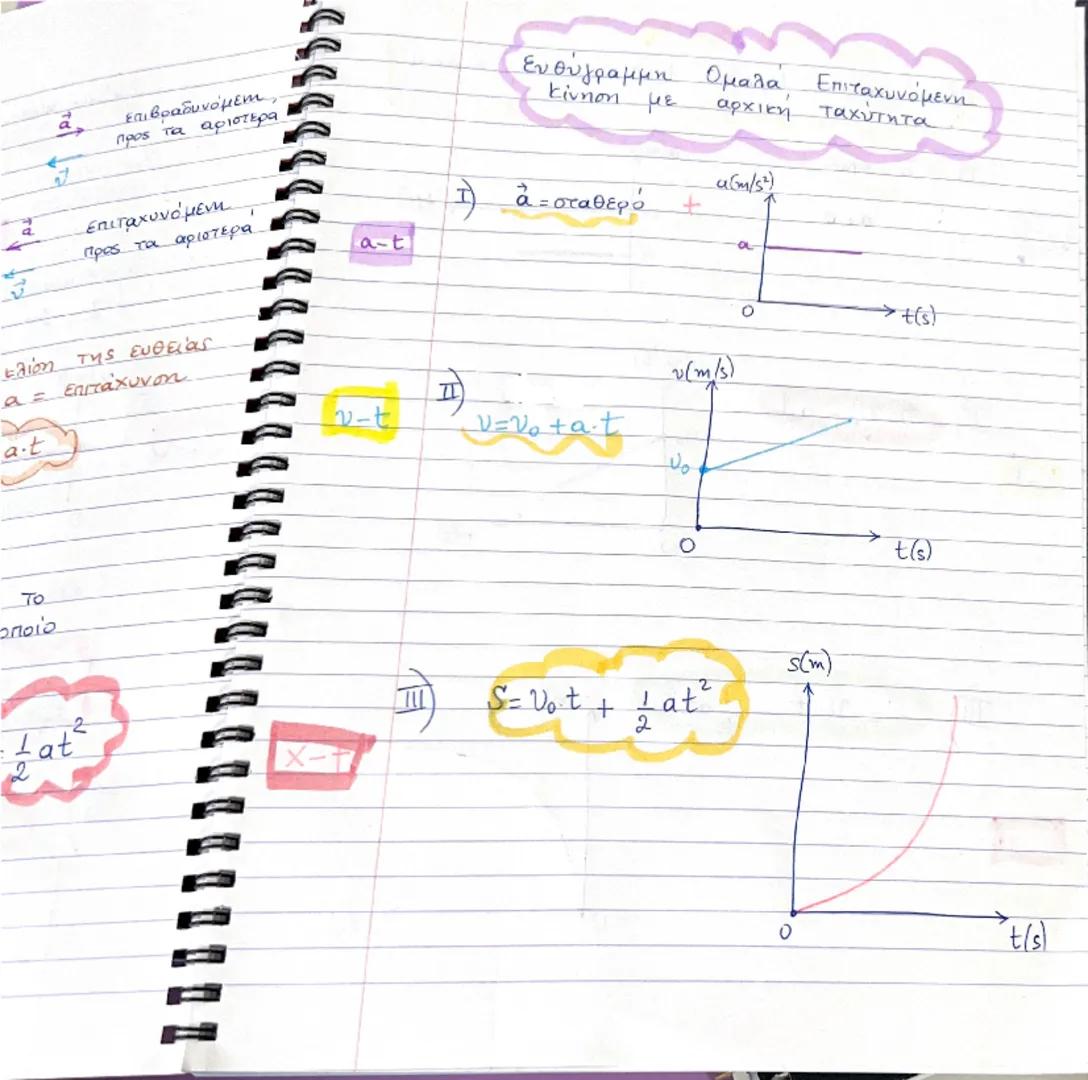 a⃗
επιβραδυνόμενη,
προς τα αριστερά
v⃗
a⃗
επιταχυνόμενη
προς τα αριστερά
v⃗
κλίση της ευθείας
a = επιτάχυνση
a·t
το
οποίο
= 1/2 at²
Ευθύγραμμη Ομαλά Επιταχυνόμενη
κίνηση με αρχική ταχύτητα
a-t
I) a⃗ = σταθερό +
a(m/s²)
a
0
t(s)
υ-t
II) υ=υ₀ +a·t
υ(m/s)
υ₀
0
t(s)
x-t
III) S= υ₀·t + 1/2 at²
s(m)
0
t(s)